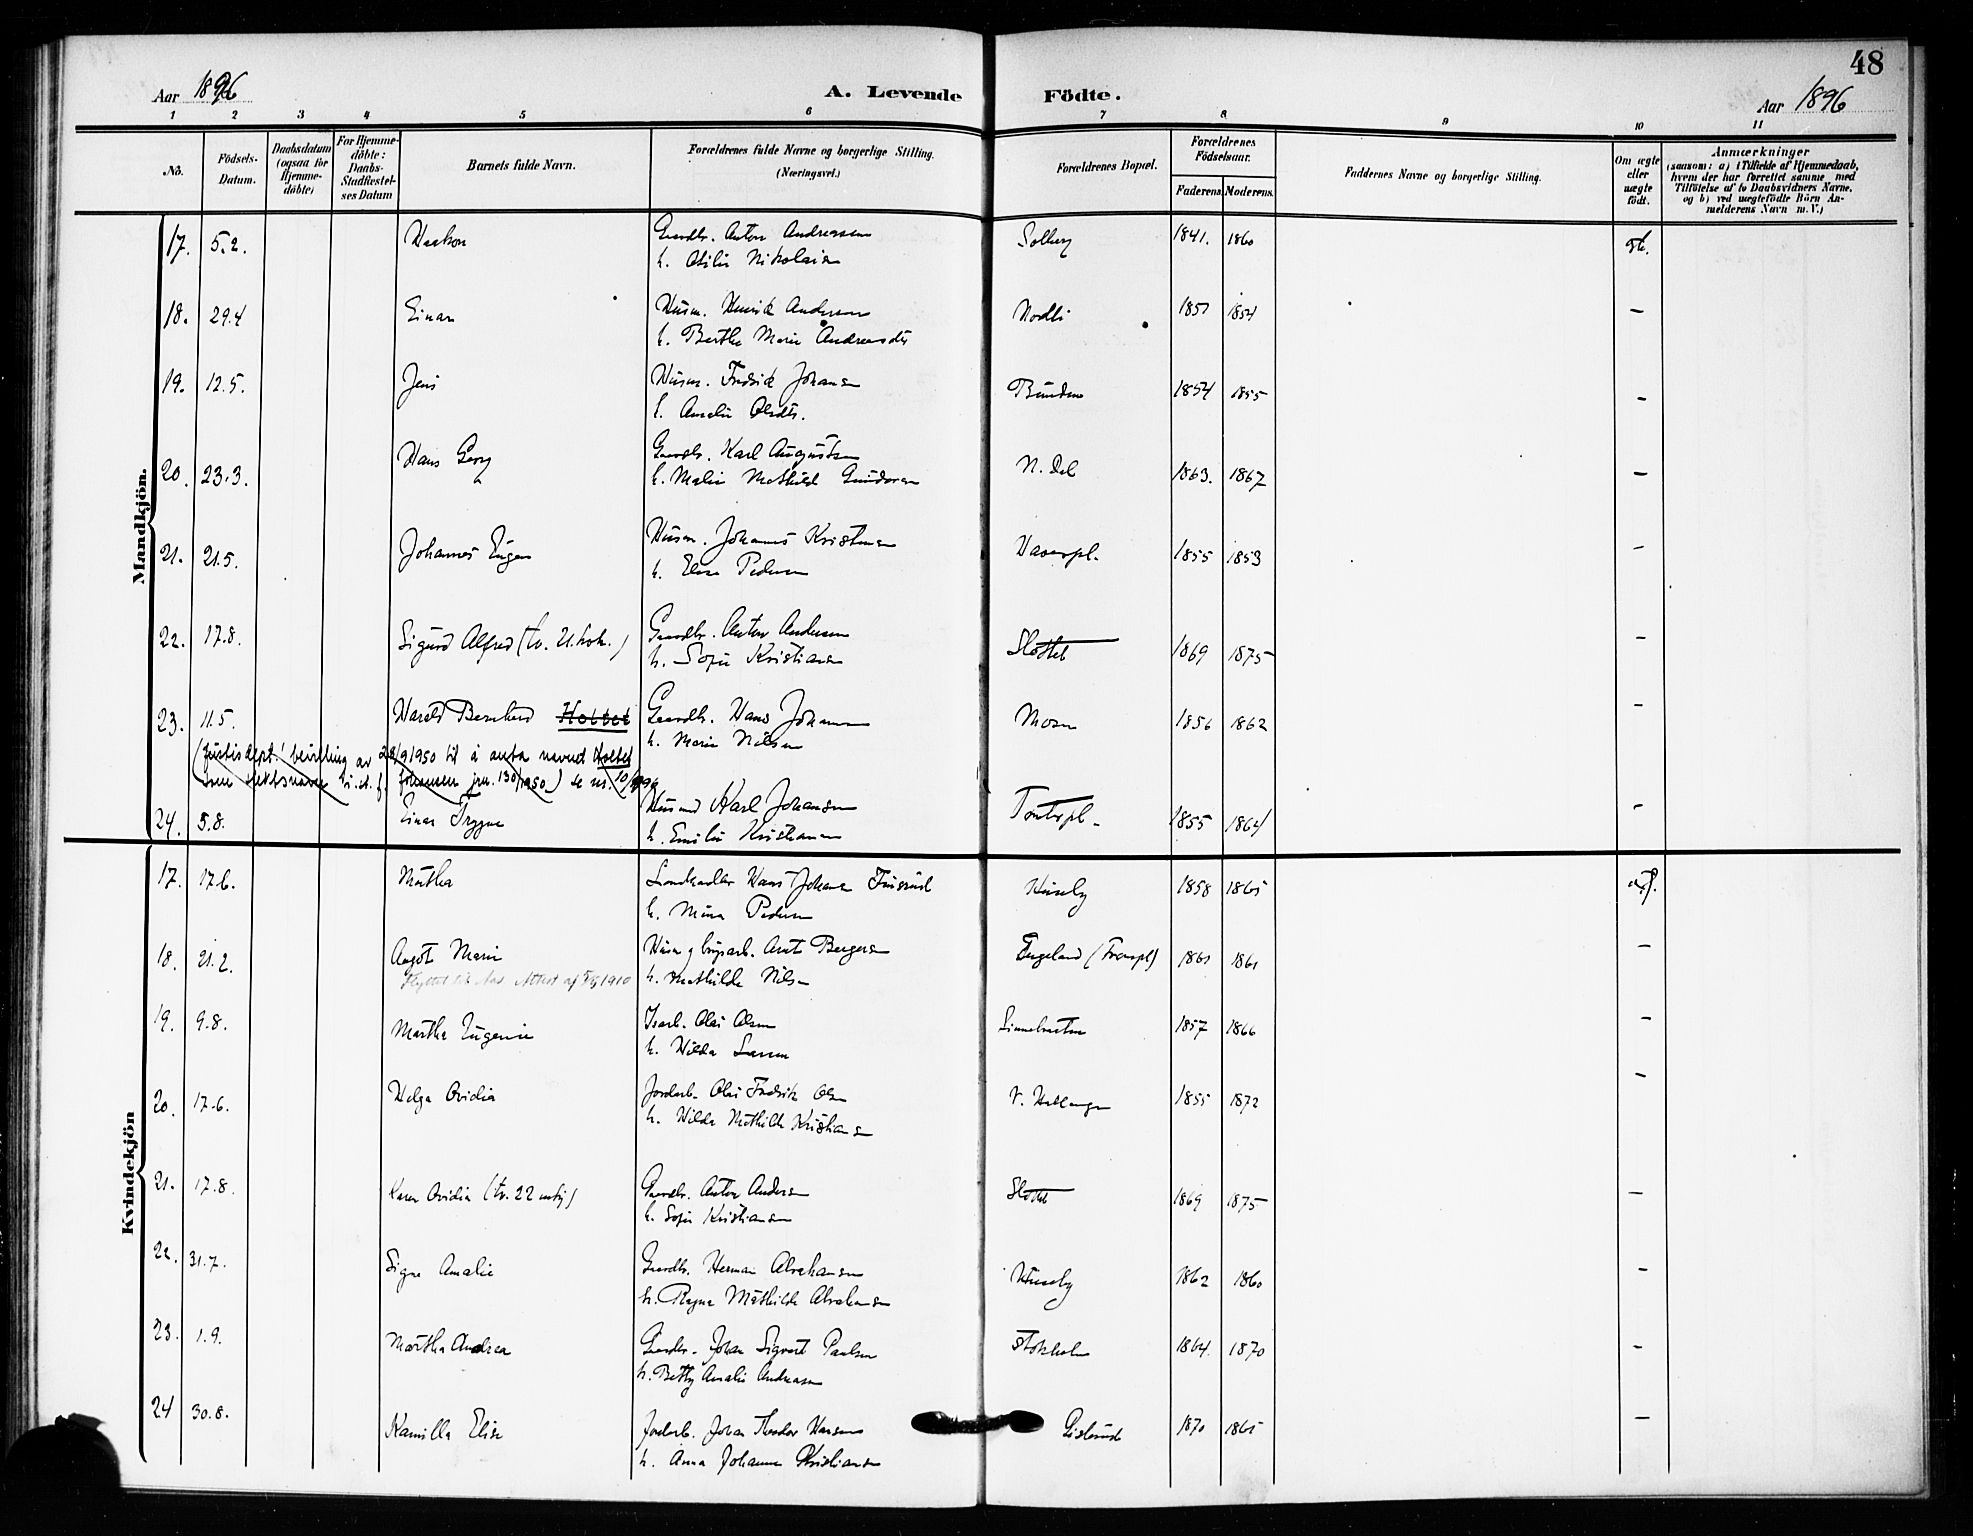 48
Aar 1896
A. Levende Födte.
Aar 1896
1 2 3 4 5 6 7 8 9 10 11
No.
Födsels-Datum.
Daabsdatum (ogsaa for Hjemme-döbte)
For Hjemme-döbte: Daabs-Stadfæstel-ses Datum
Barnets fulde Navn.
Forældrenes fulde Navne og borgerlige Stilling. (Næringsvei.)
Forældrenes Bopæl.
Forældrenes Födselsaar.
Faderens Moderens
Faddernes Navne og borgerlige Stilling.
Om ægte eller uægte födt.
Anmærkninger
(saasom: a) i Tilfælde af Hjemmedaab,
hvem der har forrettet samme, med
Tilföielse af to Daabsvidners Navne,
og b) ved uægtefödte Börn An-
melderens Navn m. V.)
Mandkjön.
17. 5.2. Haakon Gaardbr. Anton Andreassen Solberg 1841. 1860 gt.
h. Otilie Nikolaisen
18. 29.4 Einar Husm. Henrik Andersen Nodli 1851 1854 —
h. Berthe Marie Andreasdtr
19. 12.5. Jens Husm. Fredrik Johansen 1854 1855 —
h. Amalie Olsdtr.
20. 23.3. Hans Georg Gaardbr. Karl Augustsen N. Dal 1863. 1867 —
h. Malin Mathilde Gundersen
21. 21.5. Johannes Eugen Husm. Johannes Kristensen 1855 1853 —
h. Elise Pedersen
22. 17.8. Sigurd Alfred (tv. 21. kvk.) Gaardbr. Anton Andersen Slottet 1869 1875 —
h. Sofie Kristiansen
23. 11.5. Harald Bernhard Holtet Gaardbr. Hans Johansen Mosen 1856 1862 —
h. Marie Nilsen
(Justisdept. bevilling av 28/9 1950 til å anta navnet Holtet
som slektsnavn i.st.f. Johansen jnr. 130/1950) se nr. 10/1896
24. 5.8. Einar Trygve Husmd Karl Johansen 1855 1864 —
h. Emilie Kristiansen
Kvindekjön
17. 17.6. Martha Landhandler Hans Johan Fuisrud Huseby 1858 1865
h. Mina Pedersen
18. 21.2. Aagot Marie Husm og bygarb. Anet Bergersen Engeland 1861 1861 —
Flyttet til Aas Attest af 1910 h. Mathilde Nilsen
19. 9.8. Martha Eugenie Isarb. Olai Olsen 1857 1866 —
h. Hilda Larsen
20. 17.6. Helga Ovidia Jordarb. Olai Fredrik Olsen 1855 1872 —
h. Hilda Mathilde Kristiansen
21. 17.8. Karen Ovidia (tv. 22 mkj) Gaardbr. Anton Andersen Slottet 1869 1875 —
h. Sofie Kristiansen
22. 31.7. Signe Amalie Gaardbr. Herman Abrahamsen Huseby 1862 1860 —
h. Ragna Mathilde Abrahamsen
23. 1.9. Martha Andrea Gaardbr. Johan Sigvart Paulsen Stokholm 1864. 1870 —
h. Betty Amalie Andreasen
24 30.8. Kamilla Elise Jordarb. Johan Theodor Hansen Gislerud 1870 1865 —
h. Anna Johanne Kristiansen